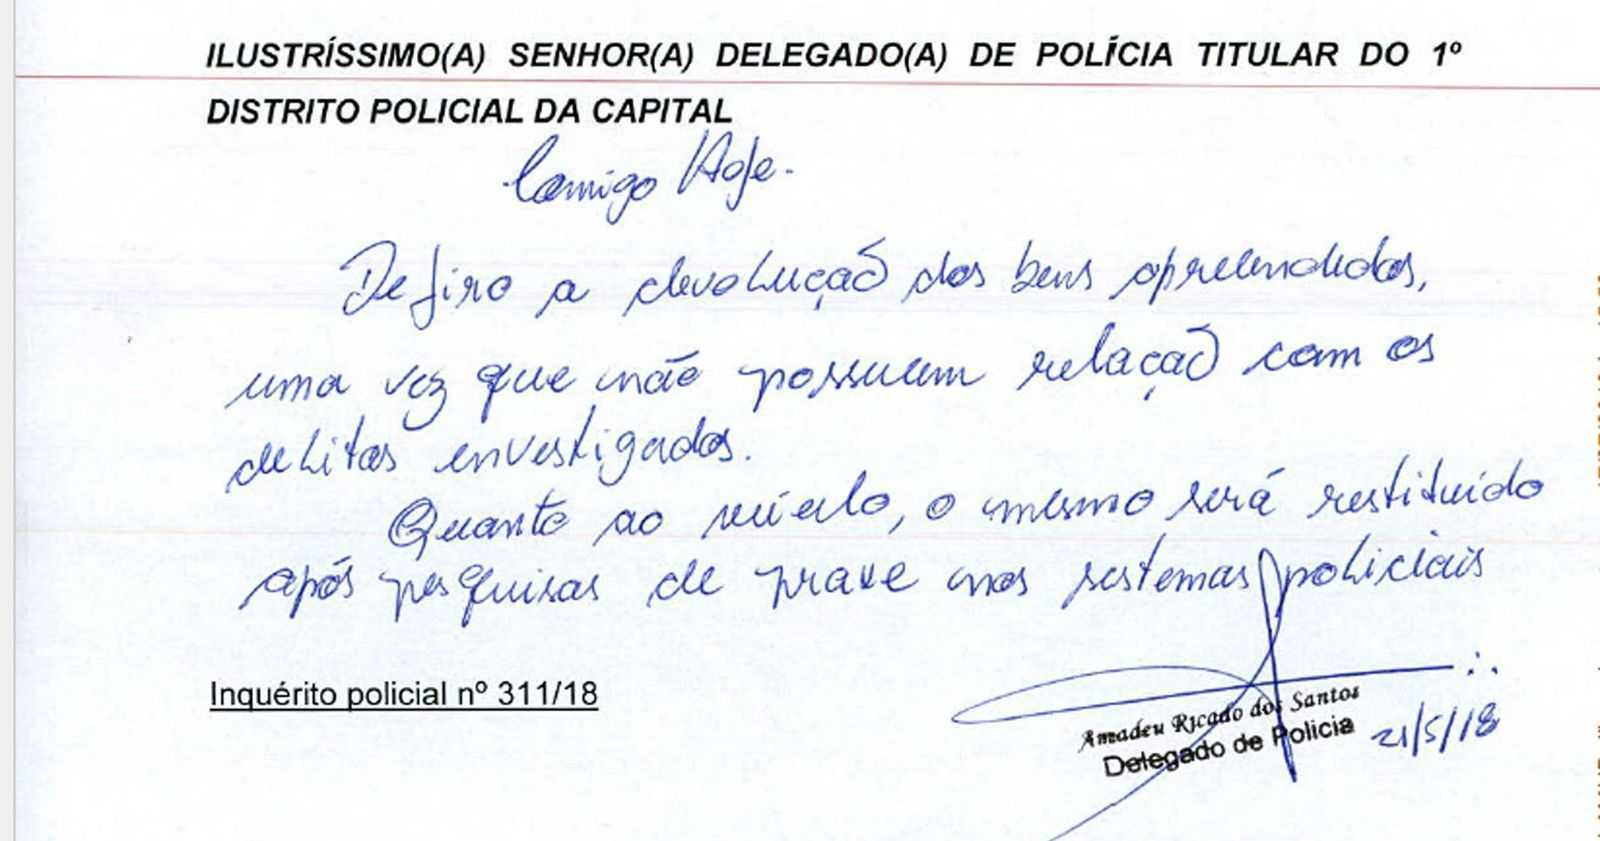 ILUSTRÍSSIMO(A) SENHOR(A) DELEGADO(A) DE POLÍCIA TITULAR DO 1º
DISTRITO POLICIAL DA CAPITAL
Comigo Hoje.
Defiro a devolução dos bens apreendidos,
uma vez que não possuem relação com os
delitos envestigados.
Quanto ao veículo, o mesmo será restituído
após pesquisas de praxe nos sistemas policiais
Inquérito policial nº 311/18
Amadeu Ricado dos Santos
Delegado de Policia 21/5/18